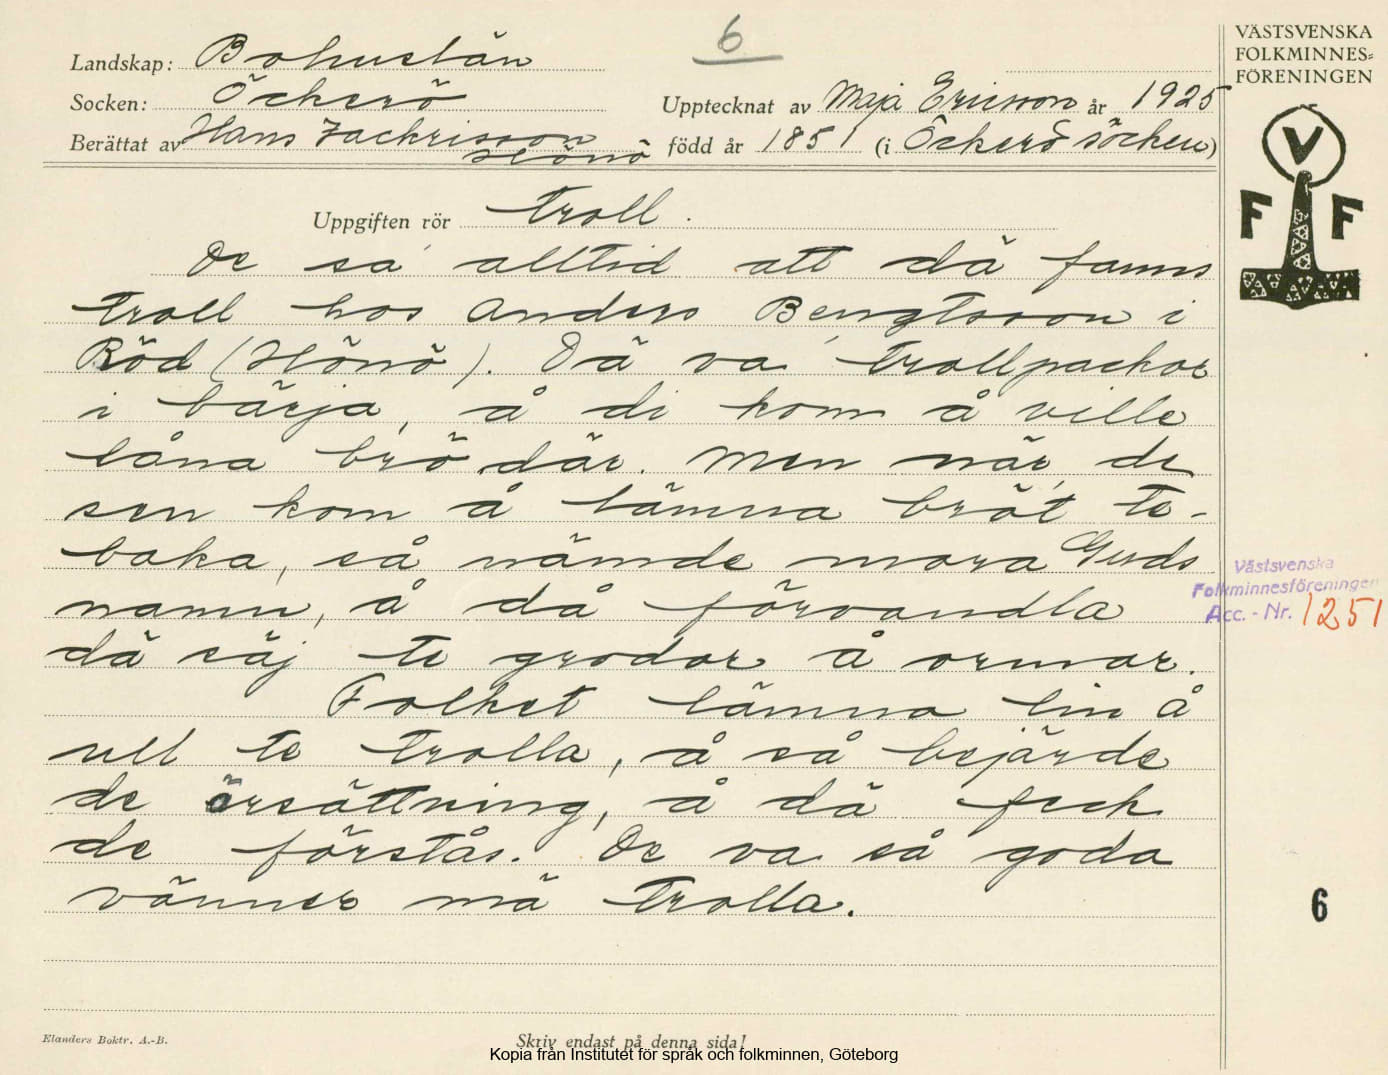 6
VÄSTSVENSKA
FOLKMINNES=
FÖRENINGEN
Landskap: Bohuslän
Socken: Öckerö
Upptecknat av Maja Ericsson år 1925
Berättat av Hans Zackrisson
Hönö
född år 1851 (i Öckerö socken)
V
F F
Uppgiften rör troll.
De sa alltid att dä fanns
troll hos Anders Bengtsson i
Röd (Hönö). Dä va trollpackor
i bärja, å di kom å ville
låna brö där. Men när de
sen kom å lämna bröt te-
baka, så nämde mora Guds
namn, å då förvandla
dä säj te grodor å ormar.
Folket lämna lin å
ull te trolla, å så bejärde
de ersättning, å dä feck
de förstås. De va så goda
vänner mä trolla.
Västsvenska
Folkminnesföreningen
Acc. - Nr. 1251
6
Elanders Boktr. A.-B.
Skriv endast på denna sida!
Kopia från Institutet för språk och folkminnen, Göteborg